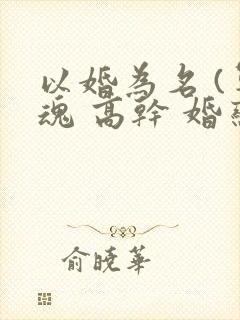 以婚為名(
魂 高幹 婚
俞曉華